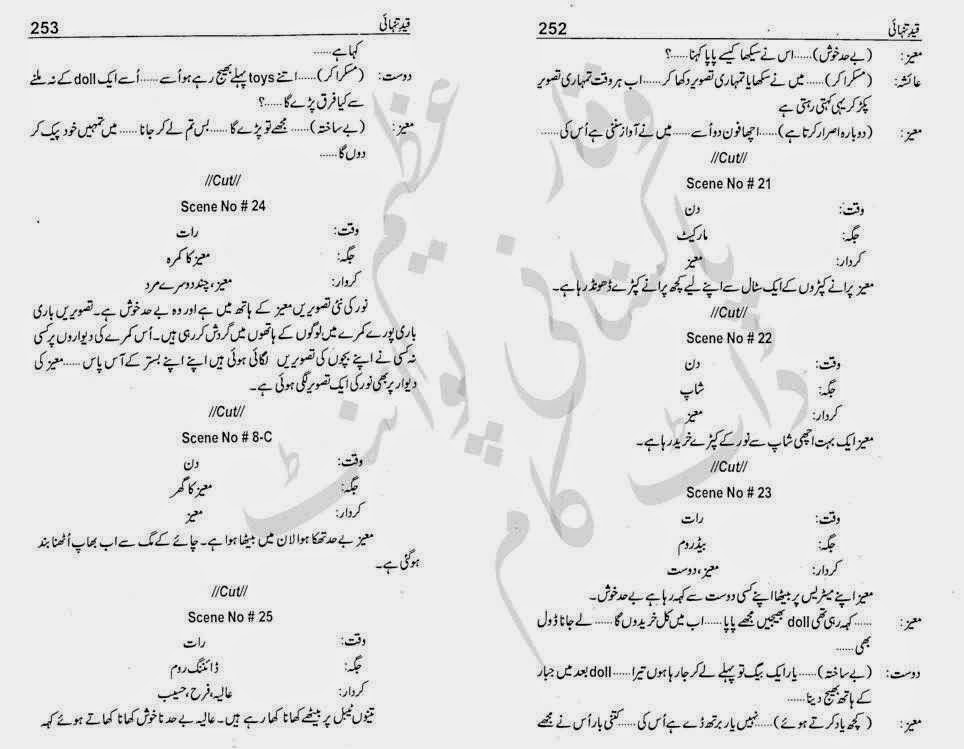 قیدِ تنہائی 252
معیز: (بے حد خوش)...... اس نے سیکھا کیسے پاپا کہنا......؟
عائشہ: (مسکرا کر)...... میں نے سکھایا تمہاری تصویر دکھا کر...... اب ہر وقت تمہاری تصویر
پکڑ کر یہی کہتی رہتی ہے
معیز: (دوبارہ اصرار کرتا ہے)...... اچھا فون دو اُسے...... میں نے آواز سننی ہے اُس کی......
//Cut//
Scene No # 21
وقت: دن
جگہ: مارکیٹ
کردار: معیز
معیز پرانے کپڑوں کے ایک سٹال سے اپنے لیے کچھ پرانے کپڑے ڈھونڈ رہا ہے۔
//Cut//
Scene No # 22
وقت: دن
جگہ: شاپ
کردار: معیز
معیز ایک بہت اچھی شاپ سے نور کے کپڑے خرید رہا ہے۔
//Cut//
Scene No # 23
وقت: رات
جگہ: بیڈروم
کردار: معیز، دوست
معیز اپنے میٹریس پر بیٹھا اپنے کسی دوست سے کہہ رہا ہے بے حد خوش۔
معیز: ...... کہہ رہی تھی doll بھیجیں مجھے پاپا...... اب میں کل خریدوں گا...... لے جانا ڈول
بھی......
دوست: (بے ساختہ)...... یار ایک بیگ تو پہلے لے کر جا رہا ہوں تیرا...... doll بعد میں جبار
کے ہاتھ بھیج دینا......
معیز: (کچھ یاد کرتے ہوئے)...... نہیں یار برتھ ڈے ہے اُس کی...... کتنی بار اُس نے مجھے
قیدِ تنہائی 253
کہا ہے......
دوست: (مسکرا کر)...... اتنے toys پہلے بھیج رہے ہو اُسے...... اُسے ایک doll کے نہ ملنے
سے کیا فرق پڑے گا......؟
معیز: (بے ساختہ)...... مجھے تو پڑے گا...... بس تم لے کر جانا...... میں تمہیں خود پیک کر
دوں گا......
//Cut//
Scene No # 24
وقت: رات
جگہ: معیز کا کمرہ
کردار: معیز، چند دوسرے مرد
نور کی نئی تصویریں معیز کے ہاتھ میں ہے اور وہ بے حد خوش ہے۔ تصویریں باری
باری پورے کمرے میں لوگوں کے ہاتھوں میں گردش کر رہی ہیں۔ اُس کمرے کی دیواروں پر کسی
نہ کسی نے اپنے بچوں کی تصویریں لگائی ہوئی ہیں اپنے اپنے بستر کے آس پاس...... معیز کی
دیوار پر بھی نور کی ایک تصویر لگی ہوئی ہے۔
//Cut//
Scene No # 8-C
وقت: دن
جگہ: معیز کا گھر
کردار: معیز
معیز بے حد تھکا ہوا لان میں بیٹھا ہوا ہے۔ چائے کے مگ سے اب بھاپ اُٹھنا بند
ہو گئی ہے۔
//Cut//
Scene No # 25
وقت: رات
جگہ: ڈائننگ روم
کردار: عالیہ، فرح، حسیب
تینوں ٹیبل پر بیٹھے کھانا کھا رہے ہیں۔ عالیہ بے حد ناخوش کھانا کھاتے ہوئے کہہ
پاکستانی پوائنٹ
ڈاٹ کام